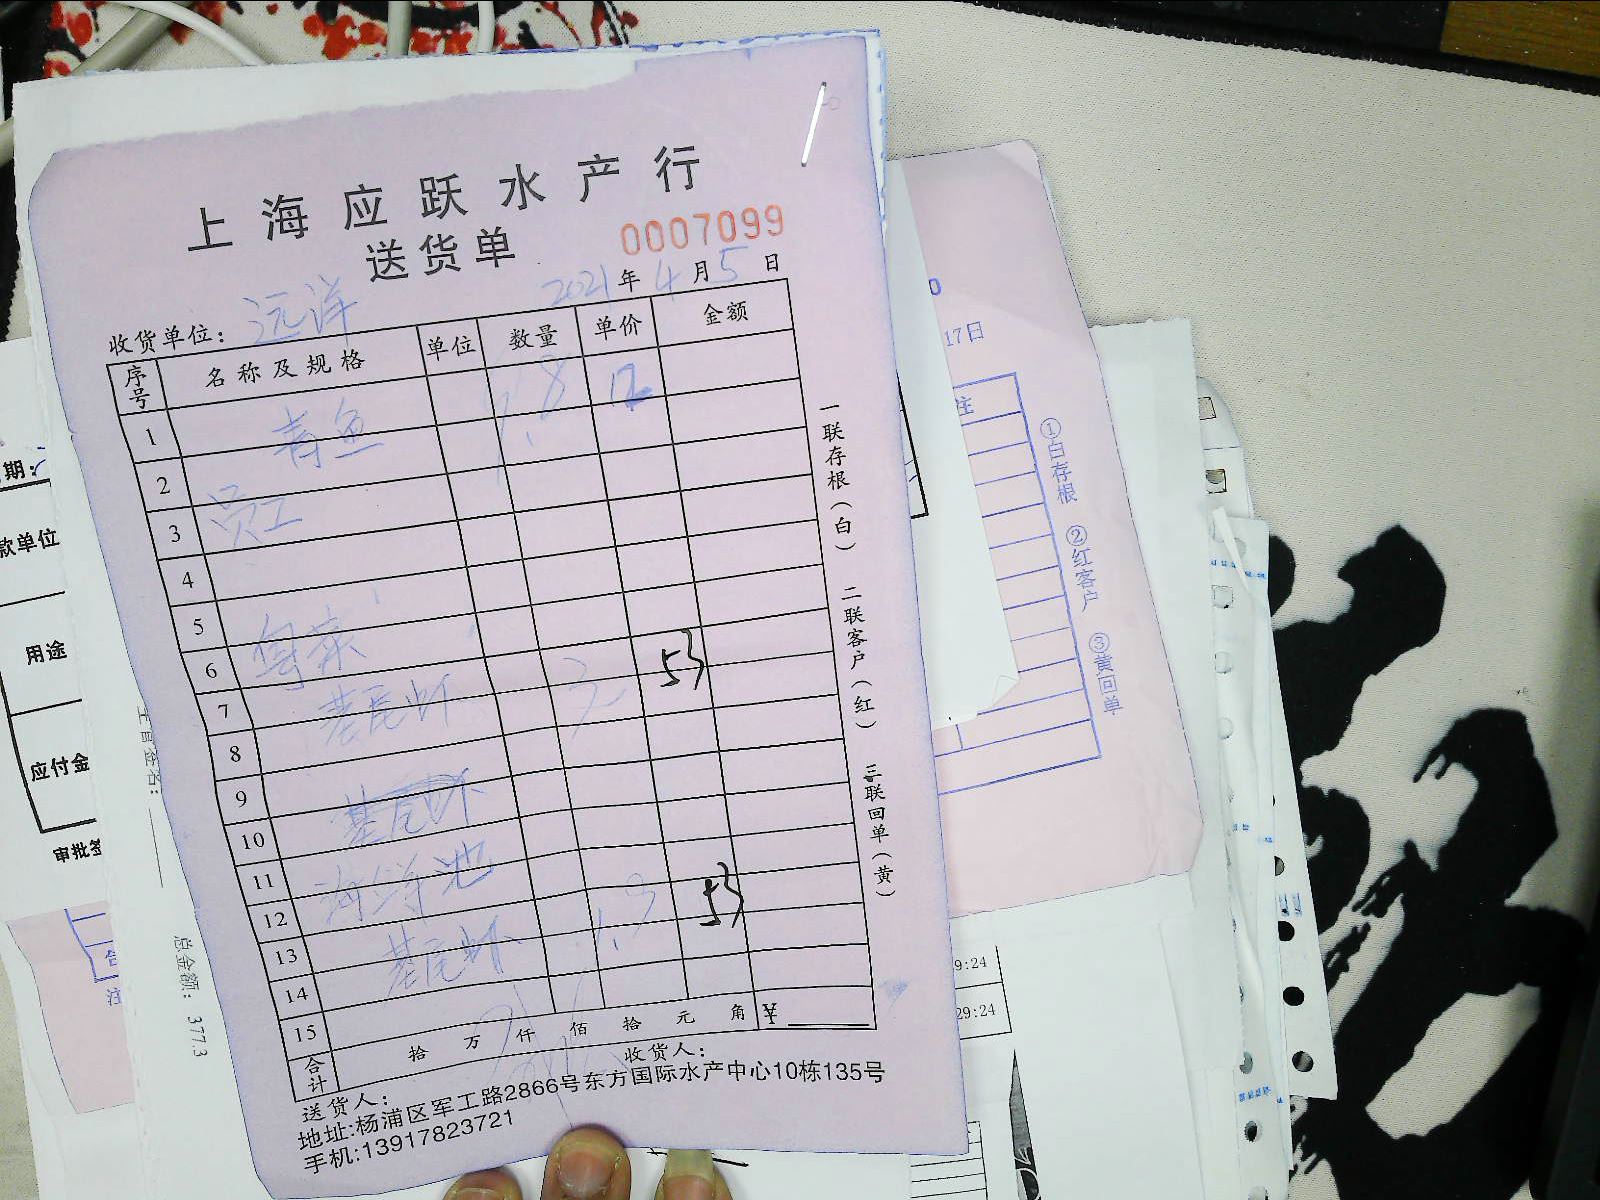 上海应跃水产行
送货单
0007099
2021年4月5日
收货单位：远洋
序号 名称及规格 单位 数量 单价 金额
1 青鱼 7.8 12
2
3 员工
4
5
6 粤菜
7 基尾虾 3 53
8
9
10 基尾虾
11
12 海洋池
13 基尾虾 1.3 53
14
15
合计 拾 万 仟 佰 拾 元 角 ¥
送货人： 收货人：
地址:杨浦区军工路2866号东方国际水产中心10栋135号
手机:13917823721
一联存根(白) 二联客户(红) 三联回单(黄)
17日
注
①白存根 ②红客户 ③黄回单
期:
款单位
用途
应付金
审批签
总金额: 377.3
9:24
29:24